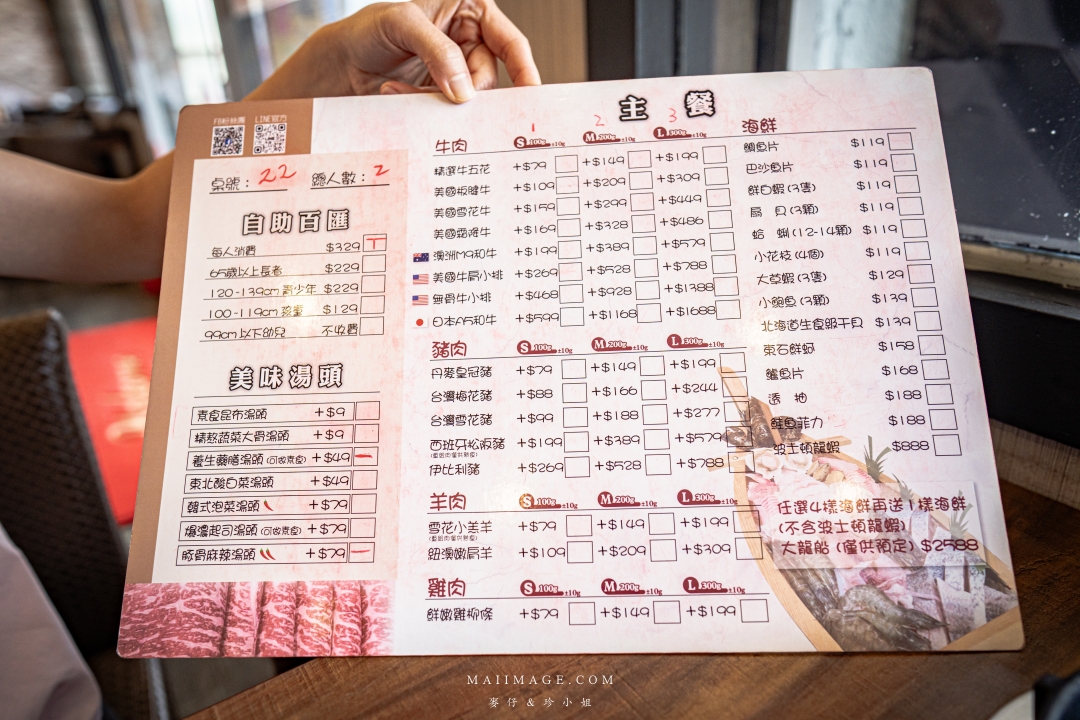 FB粉絲團 LINE官方
桌號：22 總人數：2
自助百匯
每人消費 $329 T
65歲以上長者 $229
120-139cm青少年 $229
100-119cm孩童 $129
99cm以下幼兒 不收費
美味湯頭
素食昆布湯頭 +$9
精熬蔬菜大骨湯頭 +$9
養生藥膳湯頭(可做素食) +$49 一
東北酸白菜湯頭 +$49
韓式泡菜湯頭 +$79
爆濃起司湯頭(可做素食) +$79
豚骨麻辣湯頭 +$79 一
主餐
1 2 3
牛肉 S 100g ±10g M 200g ±10g L 300g ±10g
精選牛五花 +$79 +$149 +$199
美國板腱牛 +$109 +$209 +$309
美國雪花牛 +$159 +$299 +$449
美國霜降牛 +$169 +$328 +$486
澳洲M9和牛 +$199 +$389 +$579
美國牛肩小排 +$269 +$528 +$788
無骨牛小排 +$468 +$928 +$1388
日本A5和牛 +$599 +$1168 +$1688
豬肉 S 100g ±10g M 200g ±10g L 300g ±10g
丹麥皇冠豬 +$79 +$149 +$199
台灣梅花豬 +$88 +$166 +$244
台灣雪花豬 +$99 +$188 +$277
西班牙松阪豬 +$199 +$389 +$579
伊比利豬 +$269 +$528 +$788
羊肉 S 100g ±10g M 200g ±10g L 300g ±10g
雪花小羔羊 +$79 +$149 +$199
紐澳嫩肩羊 +$109 +$209 +$309
雞肉 S 100g ±10g M 200g ±10g L 300g ±10g
鮮嫩雞柳條 +$79 +$149 +$199
海鮮
鯛魚片 $119
巴沙魚片 $119
鮮白蝦(3隻) $119
扇 貝(3顆) $119
蛤 蜊(12-14顆) $119
小花枝(4個) $119
大草蝦(3隻) $129
小鮑魚(3顆) $139
北海道生食級干貝 $139
東石鮮蚵 $158
鱸魚片 $168
透 抽 $188
鮭魚菲力 $188
波士頓龍蝦 $888
任選4樣海鮮再送1樣海鮮
(不含波士頓龍蝦)
大龍船(僅供預定) $2588
MAIIMAGE.COM
麥仔&珍小姐